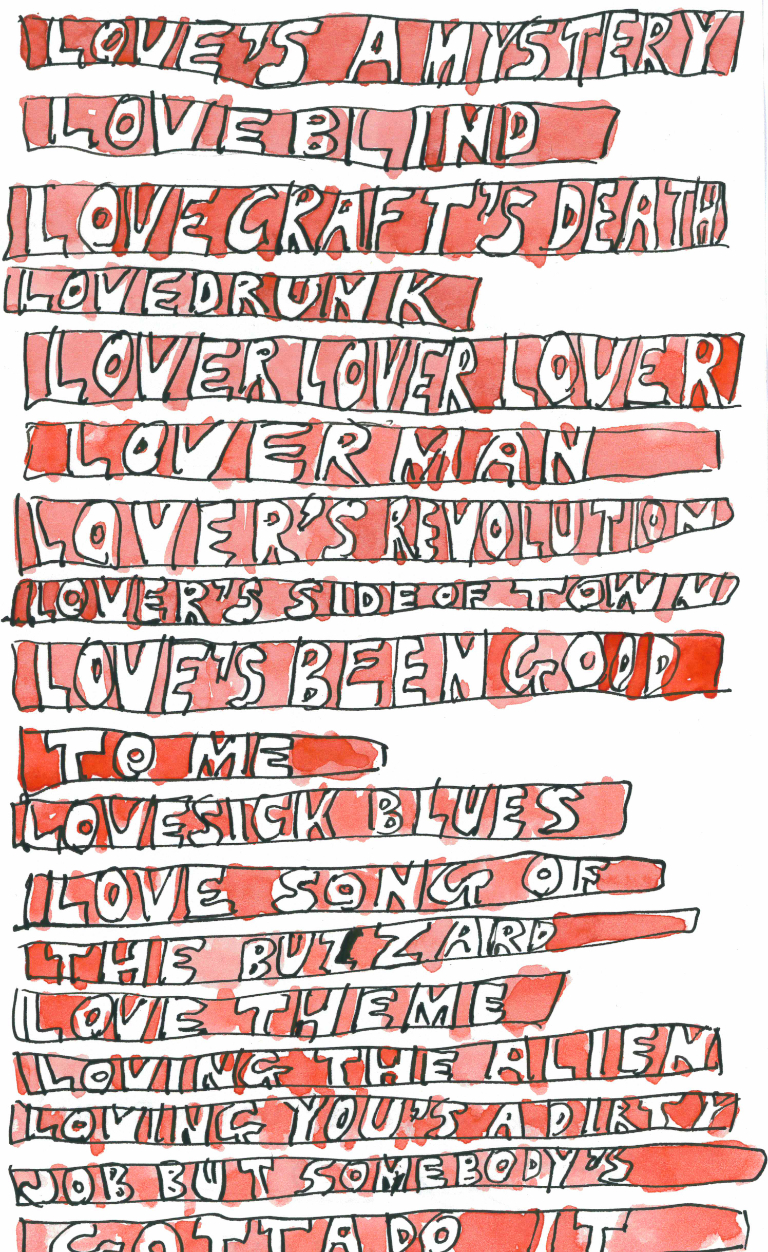 LOVE'S A MYSTERY
LOVE BLIND
LOVECRAFT'S DEATH
LOVEDRUNK
LOVER LOVER LOVER
LOVER MAN
LOVER'S REVOLUTION
LOVER'S SIDE OF TOWN
LOVE'S BEEN GOOD
TO ME
LOVESICK BLUES
LOVE SONG OF
THE BUZZARD
LOVE THEME
LOVING THE ALIEN
LOVING YOU'S A DIRTY
JOB BUT SOMEBODY'S
GOTTA DO IT